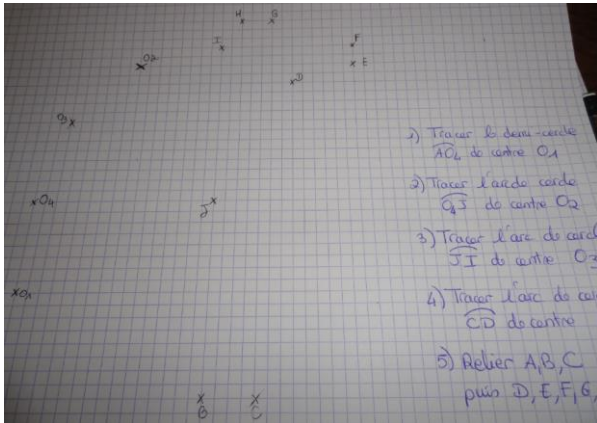 H G
I F
O2 E
D
1) Tracer le demi-cercle
AO4 de centre O1
O4 2) Tracer l'arc de cercle
J O4J de centre O2
3) Tracer l'arc de cercl
JI de centre O3
O1 4) Tracer l'arc de cer
CD de centre
5) Relier A, B, C
B C puis D, E, F, G,